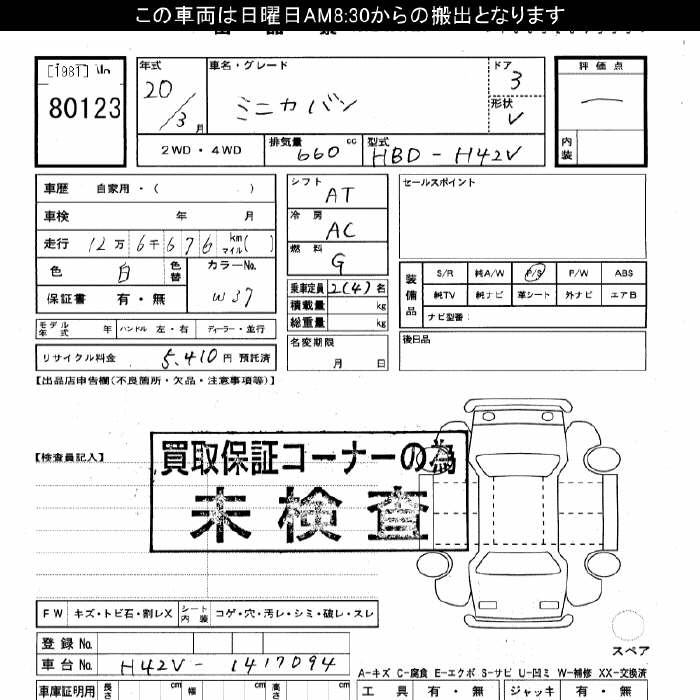 この車両は日曜日AM8:30からの搬出となります
[1981]
80123
年式
20/3月
車名・グレード
ミニカバン
ドア
3
形状
V
評価点
一
内装
2WD・4WD
排気量 660 cc
型式 HBD-H42V
車歴 自家用・( )
車検 年 月
走行 12万6千676 km マイル( )
色 白 色替
カラーNo. W37
保証書 有・無
モデル年式 年 ハンドル 左・右 ディーラー・並行
リサイクル料金 5,410円 預託済
シフト AT
冷房 AC
燃料 G
乗車定員 2(4)名
積載量 kg
総重量 kg
名変期限
月 日
セールスポイント
装備品
S/R 純A/W P/S P/W ABS
純TV 純ナビ 革シート 外ナビ エアB
ナビ型番:
後日品
【出品店申告欄(不良箇所・欠品・注意事項等)】
【検査員記入】
買取保証コーナーの為
未検査
FW キズ・トビ石・割レX シート内装 コゲ・穴・汚レ・シミ・破レ・スレ
スペア
登録No.
車台No. H42V-1417094
A-キズ C-腐食 E-エクボ S-サビ U-凹ミ W-補修 XX-交換済
車庫証明用 長さ cm 幅 cm 高さ cm
工具 有・無 ジャッキ 有・無